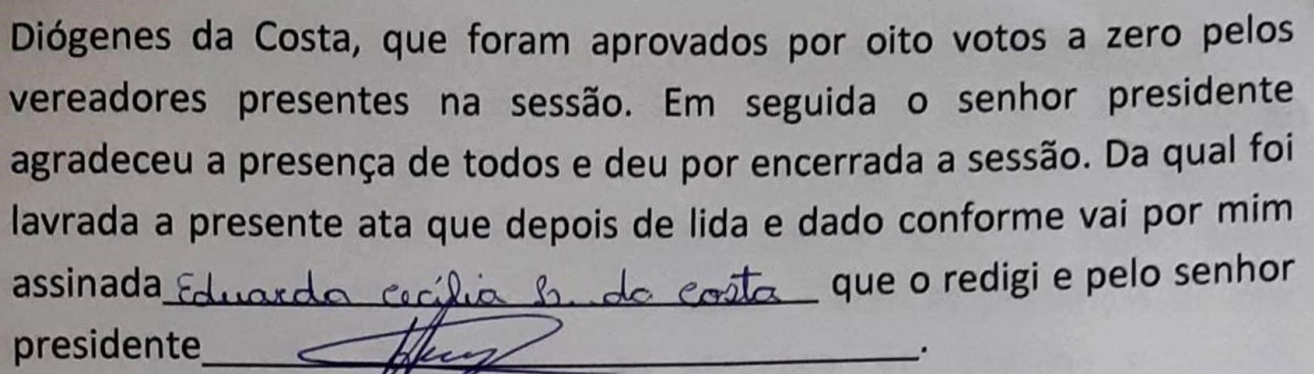 Diógenes da Costa, que foram aprovados por oito votos a zero pelos
vereadores presentes na sessão. Em seguida o senhor presidente
agradeceu a presença de todos e deu por encerrada a sessão. Da qual foi
lavrada a presente ata que depois de lida e dado conforme vai por mim
assinada Eduarda Cecília da Costa que o redigi e pelo senhor
presidente.